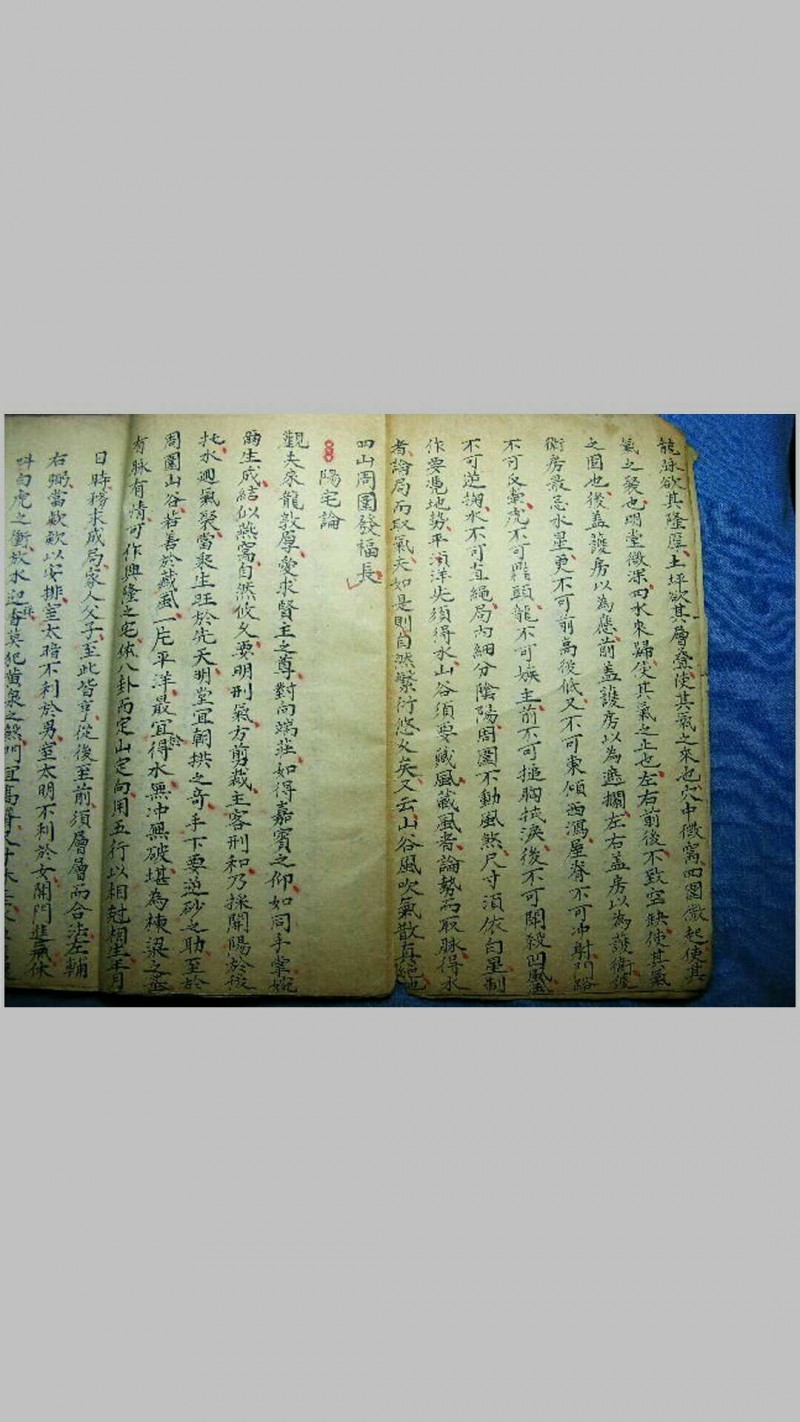 龍脉欲其隆厚土坪欲其層叠使其氣之來也穴中微窩四圍微起使其
氣之聚也明堂微深四水來歸使其氣之正也左右前後不致空缺使其氣
之固也後盖護房以為應前盖護房以為遮攔左右盖房以為護衛彼
衛房最忌水星更不可前高後低又不可東傾西瀉屋脊不可冲射門路
不可反牽虎不可頭龍不可嫉主前不可搥胸拭淚後不可開被凹風
不可逆掬水不可直繩局內細分陰陽周圍不動風煞尺寸須依白星制
作要憑地勢平洋先須得水山谷須要藏風藏風者論勢而取脉得水
者論局而取氣夫如是則自然繁衍悠久矣又云山谷風吹氣散真絕也
四山周圍發福長
陽宅論
觀夫來龍敦厚愛求賢主之尊對向端莊如得嘉賓之仰如同手掌
生成結似燕窩自然攸久要明刑氣方剪裁主客刑和乃採開陽於後
水廻氣聚當來生旺於先天明堂宜朝拱之奇手下要逆砂之助至於
周圍山谷若善於藏風一片平洋最宜於得水無冲無破堪為棟梁之
有脉有情可作興隆之宅依八卦而定山定向用五行以相尅相生年月
日時務求成局家人父子至此皆亨從後至前須層層而合法左輔
右弼當歘歘以安排室太暗不利於男室太明不利於女開門進氣休
白虎之衝放水迎莫犯黃泉之煞門宜高